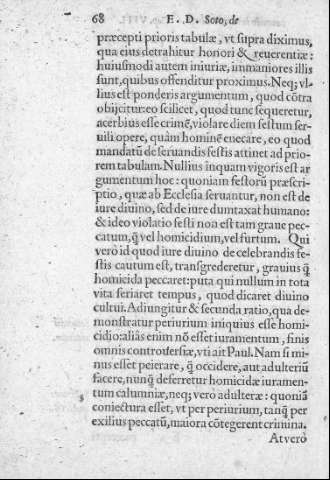 68 E. D. Soto, de
præcepti prioris tabulæ, vt supra diximus,
qua eius detrahitur honori & reuerentiæ:
huiusmodi autem iniuriæ, immaniores illis
sunt, quibus offenditur proximus. Neq; vl-
lius est ponderis argumentum, quod cōtra
obijcitur: eo scilicet, quod tunc sequeretur,
acerbius esse crimē, violare diem festum ser-
uili opere, quàm hominē enecare, eo quod
mandatū de seruandis festis attinet ad prio-
rem tabulam. Nullius inquam vigoris est ar
gumentum hoc: quoniam festorū præscri-
ptio, quæ ab Ecclesia seruantur, non est de
iure diuino, sed de iure dumtaxat humano:
& ideo violatio festi non est tam graue pec-
catum, q̄ vel homicidium, vel furtum. Qui
verò id quod iure diuino de celebrandis fe-
stis cautum est, transgrederetur, grauius q̄
homicida peccaret: puta qui nullum in tota
vita feriaret tempus, quod dicaret diuino
cultui. Adiungitur & secunda ratio, qua de-
monstratur periurium iniquius esse homi-
cidio: aliâs enim nō esset iuramentum, finis
omnis controuersiæ, vti ait Paul. Nam si mi-
nus esset peierare, q̄ occidere, aut adulteriū
facere, nunq̄ deferretur homicidæ iuramen-
tum calumniæ, neq; vero adulteræ: quoniā
coniectura esset, vt per periurium, tanq̄ per
exilius peccatū, maiora cōtegerent crimina.
At verò